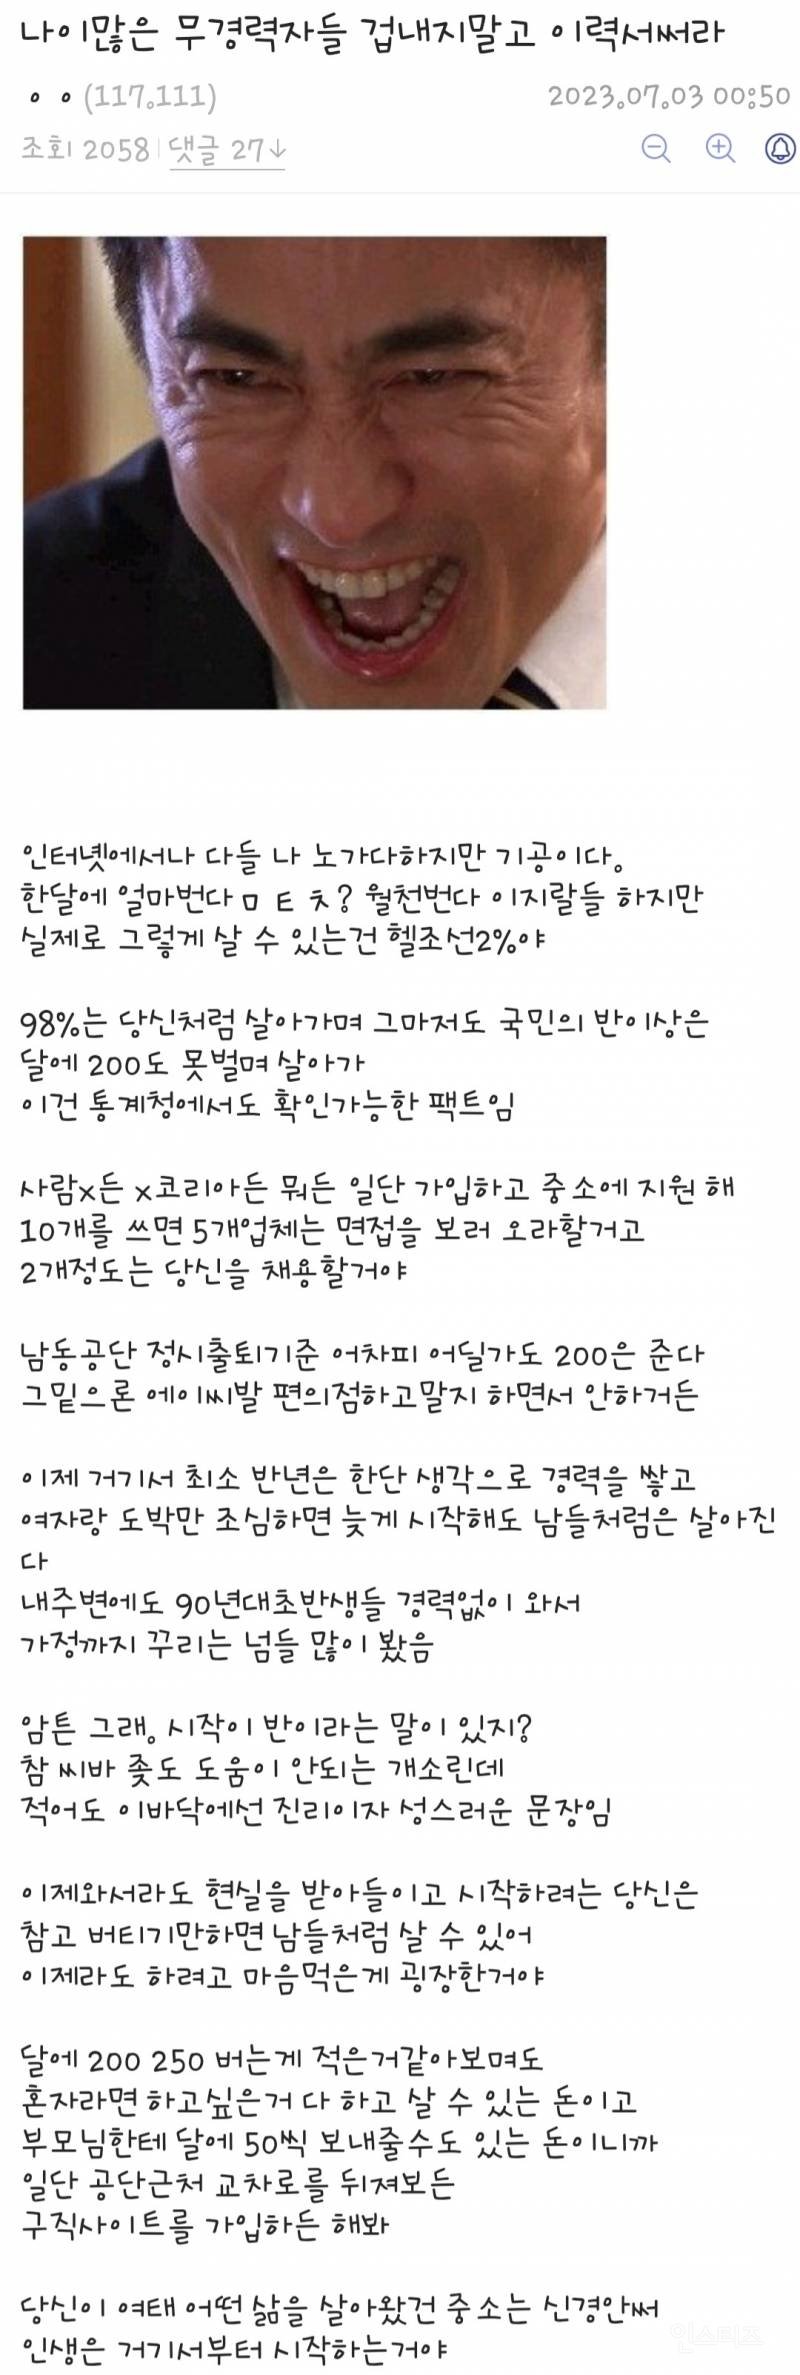 나이많은 무경력자들 겁내지말고 이력서써라
ㅇㅇ(117.111)
2023.07.03 00:50
조회 2058
댓글 27↓
인터넷에서나 다들 나 노가다하지만 기공이다。
한달에 얼마번다ㅁㅌㅊ? 월천번다 이지랄들 하지만
실제로 그렇게 살 수 있는건 헬조선2%야
98%는 당신처럼 살아가며 그마저도 국민의 반이상은
달에 200도 못벌며 살아가
이건 통계청에서도 확인가능한 팩트임
사람x든 x코리아든 뭐든 일단 가입하고 중소에 지원 해
10개를 쓰면 5개업체는 면접을 보러 오라할거고
2개정도는 당신을 채용할거야
남동공단 정시출퇴기준 어차피 어딜가도 200은 준다
그밑으론 에이씨발 편의점하고말지 하면서 안하거든
이제 거기서 최소 반년은 한단 생각으로 경력을 쌓고
여자랑 도박만 조심하면 늦게 시작해도 남들처럼은 살아진
다
내주변에도 90년대초반생들 경력없이 와서
가정까지 꾸리는 넘들 많이 봤음
암튼 그래。시작이 반이라는 말이 있지?
참 씨바 좆도 도움이 안되는 개소린데
적어도 이바닥에선 진리이자 성스러운 문장임
이제와서라도 현실을 받아들이고 시작하려는 당신은
참고 버티기만하면 남들처럼 살 수 있어
이제라도 하려고 마음먹은게 굉장한거야
달에 200 250 버는게 적은거같아보며도
혼자라면 하고싶은거 다 하고 살 수 있는 돈이고
부모님한테 달에 50씩 보내줄수도 있는 돈이니까
일단 공단근처 교차로를 뒤져보든
구직사이트를 가입하든 해봐
당신이 여태 어떤 삶을 살아왔건 중소는 신경안써
인생은 거기서부터 시작하는거야
인스티즈